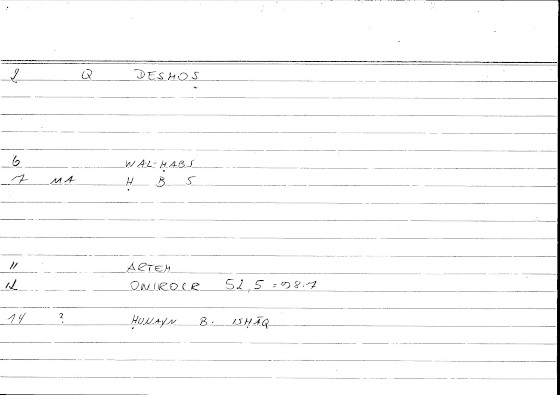 2 Q DESMOS
6 WAL-ḤABS
7 MA Ḥ B S
11 ARTEM
12 ONIROCR 52,5 = 98.7
14 ? ḤUNAYN B. ISḤĀQ